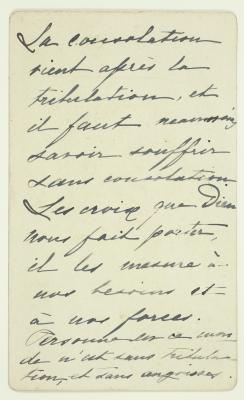 La consolation
vient après la
tribulation, et
il faut néanmoins
savoir souffrir
sans consolation
Les croix que Dieu
nous fait porter,
il les mesure à
nos besoins et
à nos forces.
Personne en ce mon
de n'est sans tribula
tion, et sans angoisses.